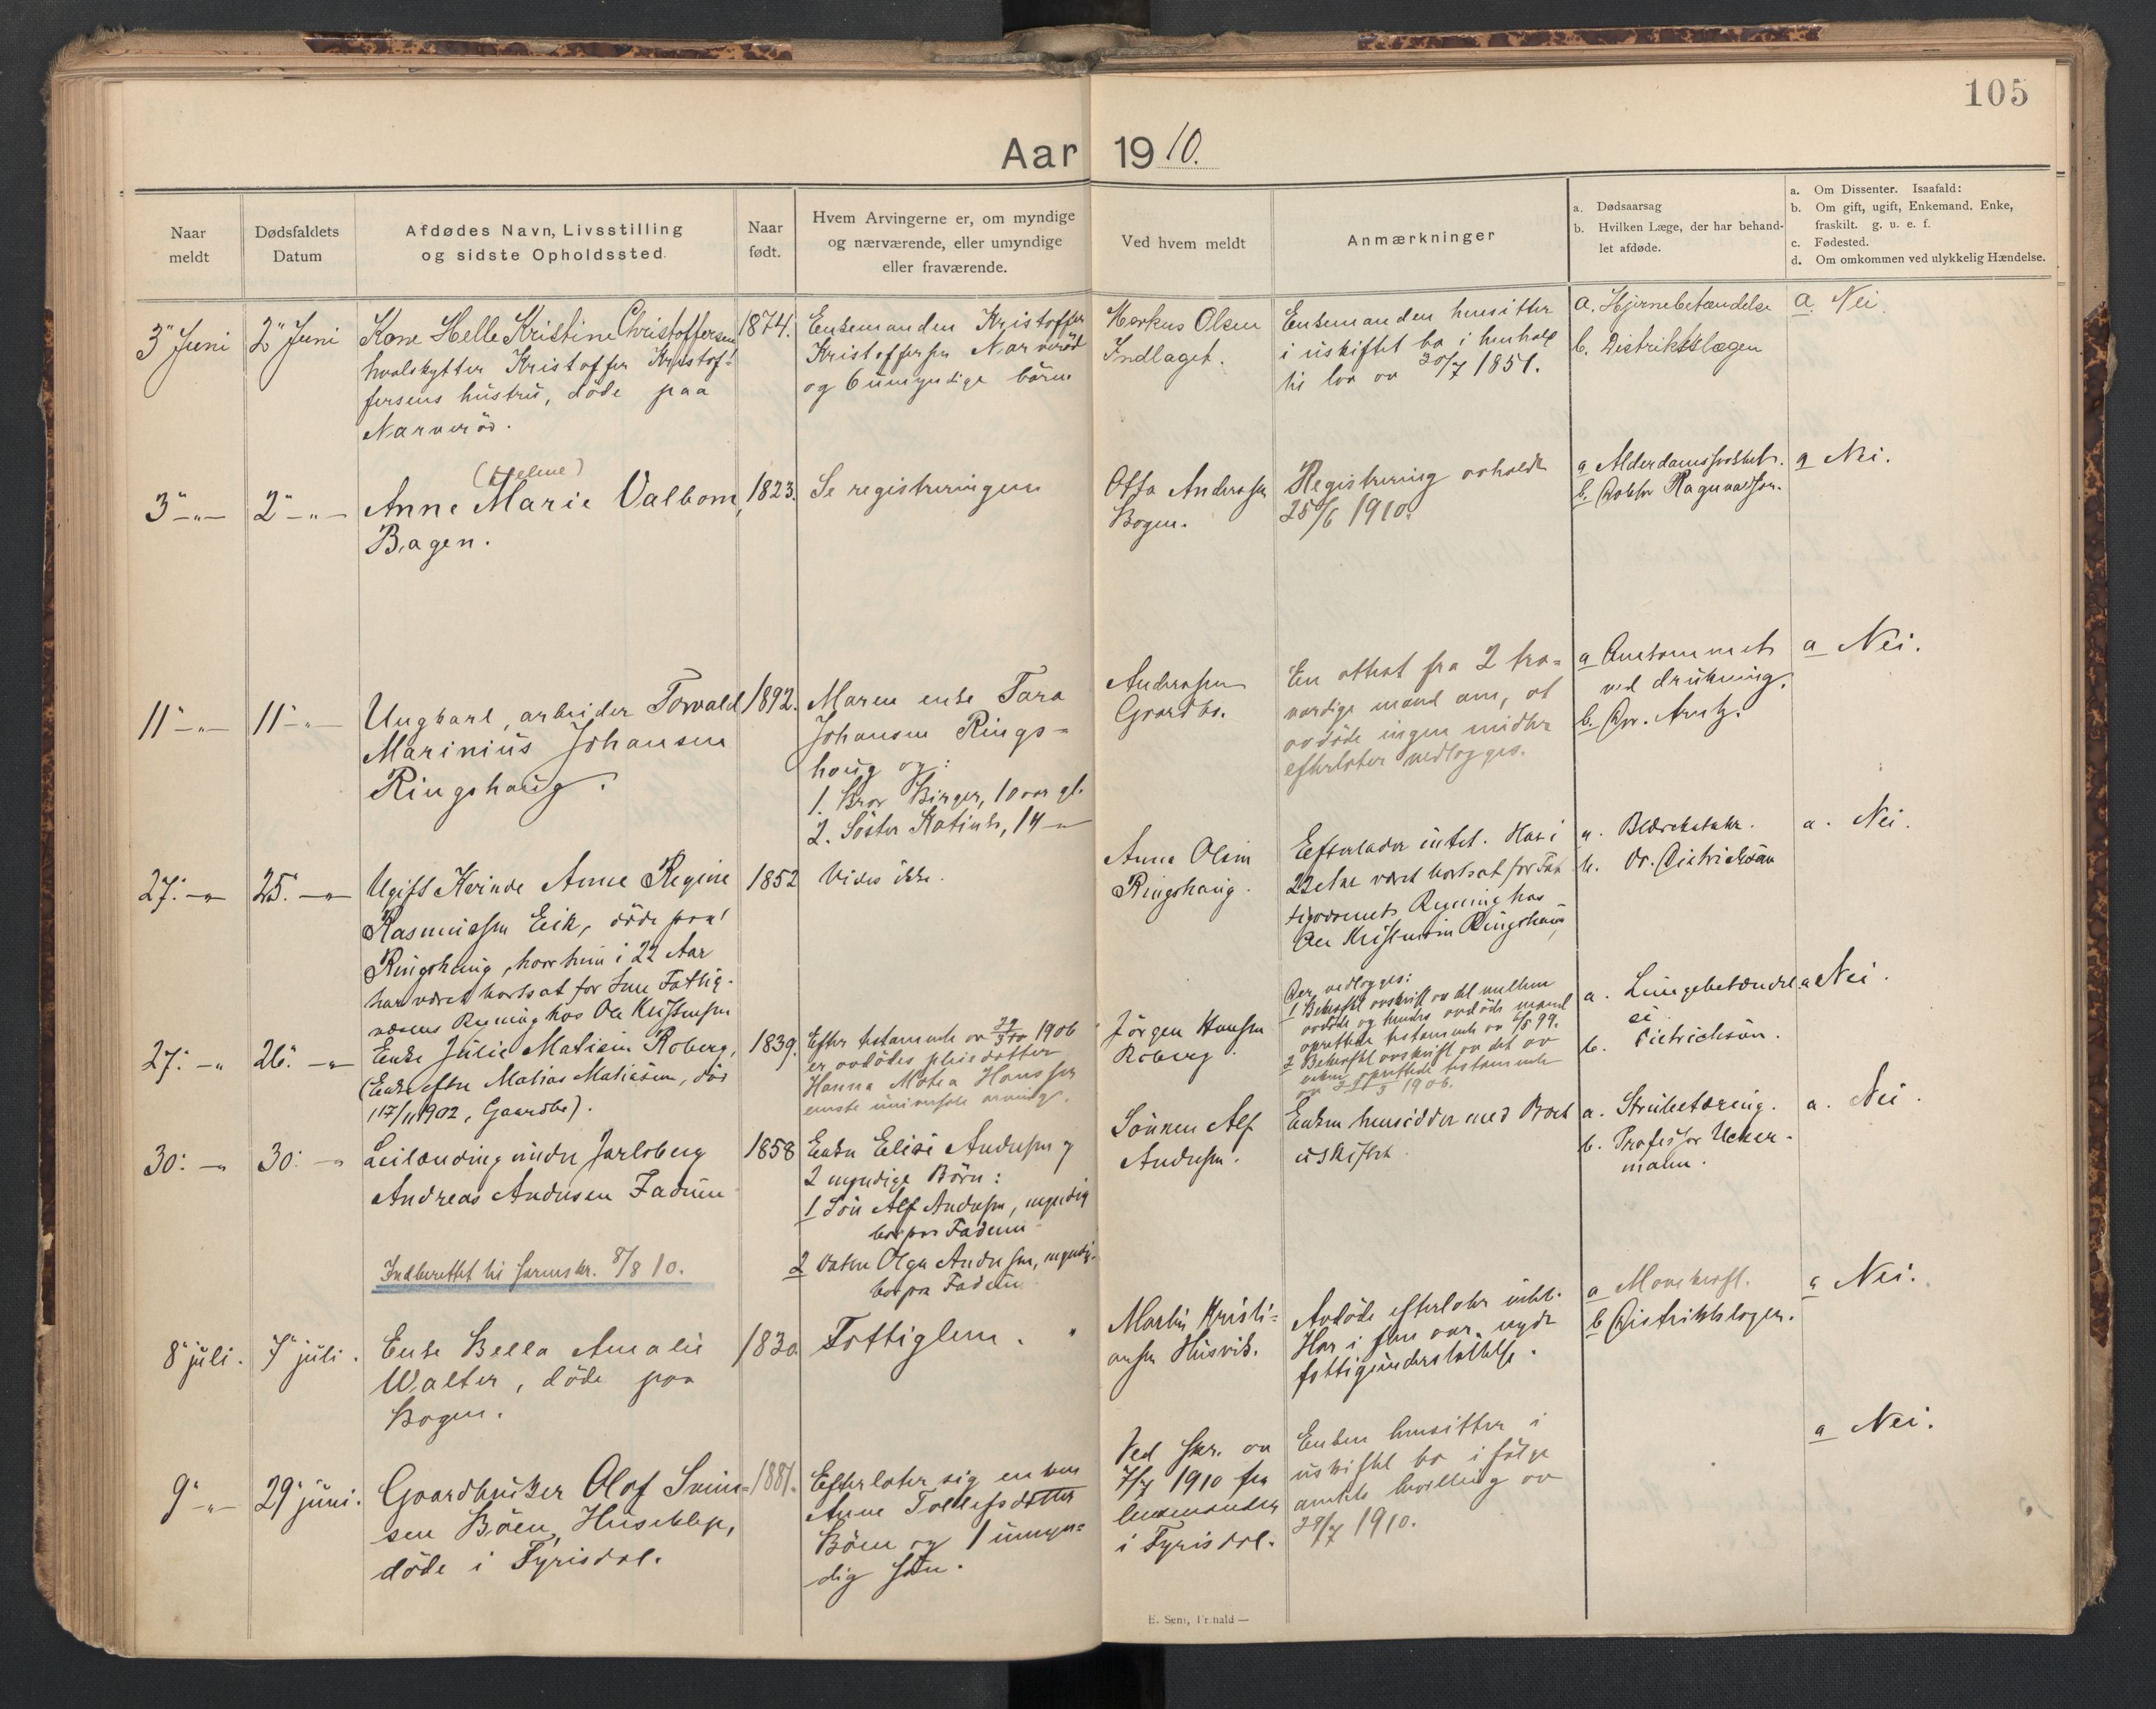 105
Aar 1910.
Naar
meldt
Dødsfaldets
Datum
Afdødes Navn, Livsstilling
og sidste Opholdssted.
Naar
født.
Hvem Arvingerne er, om myndige
og nærværende, eller umyndige
eller fraværende.
Ved hvem meldt
Anmærkninger
a. Dødsaarsag
b. Hvilken Læge, der har behand-
let afdøde.
a. Om Dissenter. Isaafald:
b. Om gift, ugift, Enkemand, Enke,
fraskilt. g. u. e. f.
c. Fødested.
d. Om omkommen ved ulykkelig Hændelse.
3" Juni
2" Juni
Kone Helle Kristine Christoffersen
hvalskytter Kristoffer Kristof-
fersens hustru, døde paa
Narverød.
1874.
Enkemanden Kristoffer
Kristoffersen Narverød
og 6 umyndige børn
Markus Olsen
Indlaget.
Enkemanden hensitter
i uskiftet bo i henhold
til lov av 30/7 1851.
a. Hjernebetændelse
b. Distriktslægen
a. Nei.
3"-"-
2"-"-
(Helene)
Anne Marie Valbom,
Bagen.
1823.
Se registreringen
Otto Andersen
Bogen.
Registrering avholdt
25/6 1910.
a Alderdomssvakhet.
b. Doktor Ragnvaldsen.
a Nei.
11"-"-
11"-"-
Ungkarl, arbeider Torvald
Marinius Johansen
Ringshaug.
1892.
Moren enke Tara
Johansen Rings-
haug og:
1. Bror Birger, 10 aar gl.
2. Søster Katinka, 14 -"-
Andersen
Gaardbo.
En attest fra 2 tro-
værdige mænd om, at
avdøde ingen midler
efterlater vedlægges.
a Omkommet
ved drukning.
b. Dr. Arntz.
a Nei.
27: -"-
25. -"-
Ugift Kvinde Anne Regine
Rasmussen Eik, døde paa
Ringshaug, hvor hun i 22 Aar
har været bortsat for Sem Fattig-
væsens Regning hos Ole Kristensen
1852
Vides ikke.
Anna Olsen
Ringshaug.
Efterlader intet. Har i
22 Aar været bortsat for Fat
tigvæsenets Regning hos
Ole Kristensen Ringshaug
a. Blærekatarr.
b. Dr. Dietrichson
a. Nei.
27: -"-
26. -"-
Enke Julie Matisen Roberg,
(Enke efter Matias Matiasen, død
17/11 1902, Gaardbo).
1839.
Efter testamente av 29/3 1906
er avdødes pleiedatter
Hanna Matea Hanssen
eneste universale arving.
Jørgen Hansen
Roberg.
Der vedlægges:
1 Bekræftet avskrift av det mellem
avdøde og hendes avdøde mand
oprettede testamente av 6/5 99.
2 Bekræftet avskrift av det av
enken oprettede testamente
av 29/3 1906.
a. Lungebetændel
se
b. Dietrichson.
a Nei.
30: -"-
30: -"-
Leilænding under Jarlsberg
Andreas Andersen Fadum
Indberettet til Sorenskr. 8/8 10.
1858
Enken Elise Andersen og
2 myndige Børn:
1 Søn Alf Andersen, myndig
bor paa Fadum
2 Datter Olga Andersen, myndig.
bor paa Fadum
Sønnen Alf
Andersen.
Enken hensidder med Boet
uskiftet.
a. Strubetæring.
b. Professor Ucker-
mann.
a. Nei.
8" juli.
7" juli.
Enke Bella Amalie
Walter, døde paa
Bogen.
1830
Fattiglem.
Martin Kristi-
ansen Husvik.
Avdøde efterlater intet.
Har i flere aar nydt
fattigunderstøttelse.
a Mavekræft.
b Distriktslægen.
a Nei.
9"-"-
29" juni.
Gaardbruker Olaf Svein-
sen Böen, Huseklep,
døde i Fyrisdal.
1881.
Efterlater sig enken
Anne Tollefsdatter
Böen og 1 umyn-
dig søn.
Ved skr. av
7/7 1910 fra
lensmanden
i Fyrisdal.
Enken hensitter i
uskiftet bo i følge
amtets bevilling av
29/7 1910.
a Nei.
E. Sem, Fr.hald —